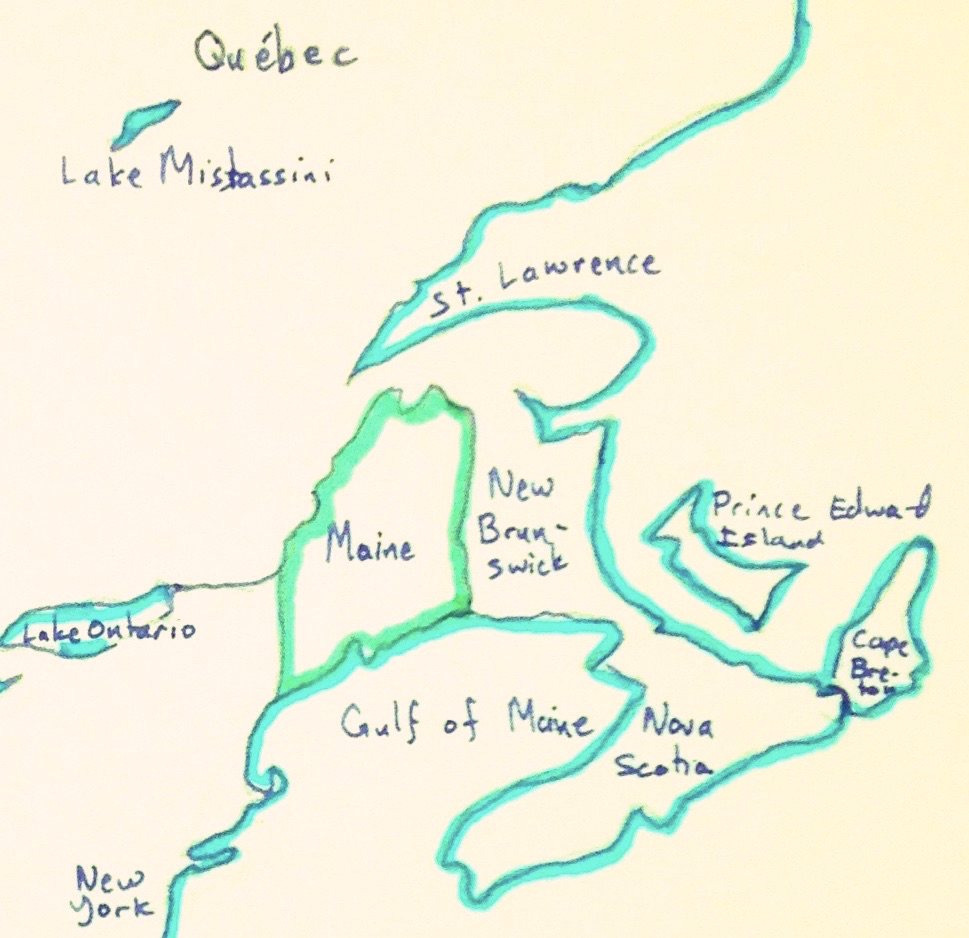 Québec
Lake Mistassini
St. Lawrence
New
Brun-
swick
Maine
Prince Edward
Island
Lake Ontario
Cape
Bre-
ton
Gulf of Maine
Nova
Scotia
New
York